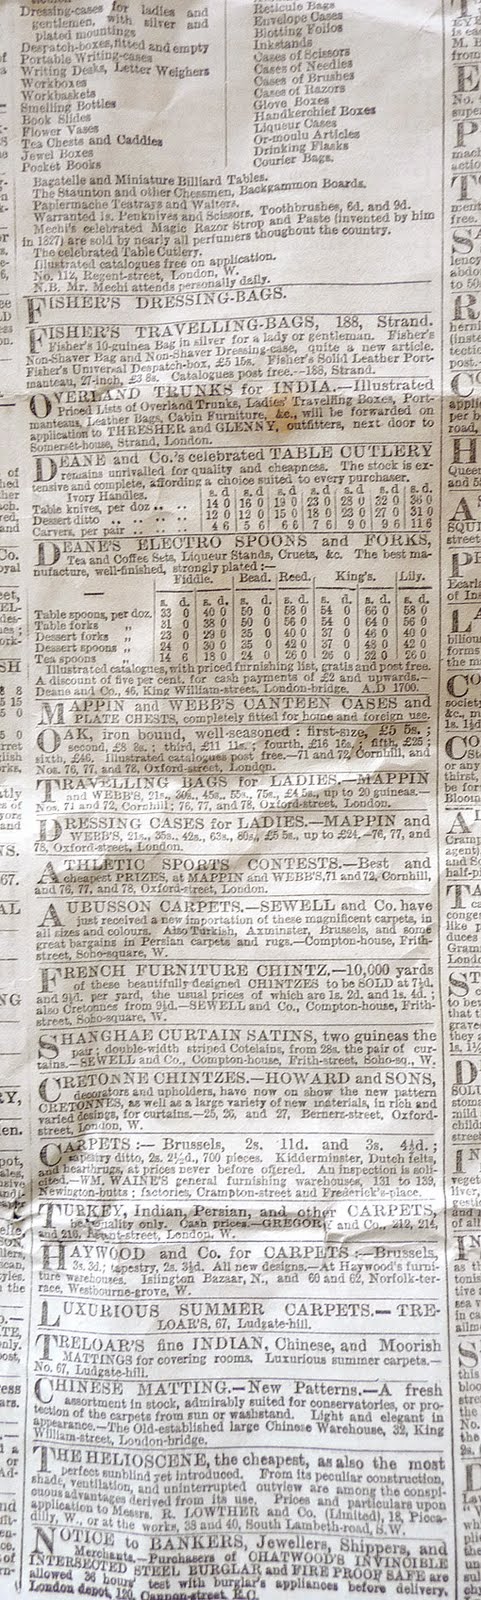 Dressing-cases for ladies and
gentlemen, with silver and
plated mountings
Despatch-boxes, fitted and empty
Portable Writing-cases
Writing Desks, Letter Weighers
Workboxes
Workbaskets
Smelling Bottles
Book Slides
Flower Vases
Tea Chests and Caddies
Jewel Boxes
Pocket Books
Reticule Bags
Envelope Cases
Blotting Folios
Inkstands
Cases of Scissors
Cases of Needles
Cases of Brushes
Cases of Razors
Glove Boxes
Handkerchief Boxes
Liqueur Cases
Or-moulu Articles
Drinking Flasks
Courier Bags.
Bagatelle and Miniature Billiard Tables.
The Staunton and other Chessmen, Backgammon Boards.
Papiermache Teatrays and Waiters.
Warranted 1s. Penknives and Scissors. Toothbrushes, 6d. and 9d.
Mechi's celebrated Magic Razor Strop and Paste (invented by him
in 1827) are sold by nearly all perfumers thoughout the country.
The celebrated Table Cutlery.
Illustrated catalogues free on application.
No. 112, Regent-street, London, W.
N.B. Mr. Mechi attends personally daily.
FISHER'S DRESSING-BAGS.
FISHER'S TRAVELLING-BAGS, 188, Strand.
Fisher's 10-guinea Bag in silver for a lady or gentleman. Fisher's
Non-Shaver Bag and Non-Shaver Dressing-case, quite a new article.
Fisher's Universal Despatch-box, £5 15s. Fisher's Solid Leather Port-
manteau, 27-inch, £3 8s. Catalogues post free.—188, Strand.
OVERLAND TRUNKS for INDIA.—Illustrated
Priced Lists of Overland Trunks, Ladies' Travelling Boxes, Port-
manteaus, Leather Bags, Cabin Furniture, &c., will be forwarded on
application to THRESHER and GLENNY, outfitters, next door to
Somerset-house, Strand, London.
DEANE and Co.'s celebrated TABLE CUTLERY
remains unrivalled for quality and cheapness. The stock is ex-
tensive and complete, affording a choice suited to every purchaser.
Ivory Handles. s. d s. d s. d s. d s. d s. d
Table knives, per doz .. .. 14 0 16 0 19 0 23 0 28 0 36 0
Dessert ditto .. .. .. 12 0 12 0 15 0 18 0 23 0 31 0
Carvers, per pair .. .. 4 6 5 6 6 6 7 6 9 0 11 6
DEANE'S ELECTRO SPOONS and FORKS,
Tea and Coffee Sets, Liqueur Stands, Cruets, &c. The best ma-
nufacture, well-finished, strongly plated :—
Fiddle. Bead. Reed. King's. Lily.
— s. d. s. d. s. d. s. d. s. d. s. d.
Table spoons, per doz. 33 0 40 0 58 0 54 0 66 0 58 0
Table forks „ 31 0 38 0 56 0 54 0 64 0 56 0
Dessert forks „ 23 0 29 0 40 0 37 0 46 0 40 0
Dessert spoons „ 24 0 30 0 42 0 37 0 48 0 42 0
Tea spoons „ 14 6 18 0 26 0 26 0 32 0 26 0
Illustrated catalogues, with priced furnishing list, gratis and post free.
A discount of five per cent. for cash payments of £2 and upwards.—
Deane and Co., 46, King William-street, London-bridge. A.D 1700.
MAPPIN and WEBB'S CANTEEN CASES and
PLATE CHESTS, completely fitted for home and foreign use.
OAK, iron bound, well-seasoned : first-size, £5 5s. ;
second, £8 8s. ; third, £11 11s. ; fourth, £16 16s. ; fifth, £25 ;
sixth, £46. Illustrated catalogues post free.—71 and 72, Cornhill, and
Nos. 76, 77, and 78, Oxford-street, London.
TRAVELLING BAGS for LADIES.—MAPPIN
and WEBB'S, 21s., 30s., 45s., 55s., 75s., £4 5s., up to 20 guineas.—
Nos. 71 and 72, Cornhill; 76, 77, and 78, Oxford-street, London.
DRESSING CASES for LADIES.—MAPPIN and
WEBB'S, 21s., 35s., 42s., 63s., 80s., £5 5s., up to £24.—76, 77, and
78, Oxford-street, London.
ATHLETIC SPORTS CONTESTS.—Best and
cheapest PRIZES, at MAPPIN and WEBB'S, 71 and 72, Cornhill,
and 76, 77, and 78, Oxford-street, London.
AUBUSSON CARPETS.—SEWELL and Co. have
just received a new importation of these magnificent carpets, in
all sizes and colours. Also Turkish, Axminster, Brussels, and some
great bargains in Persian carpets and rugs.—Compton-house, Frith-
street, Soho-square, W.
FRENCH FURNITURE CHINTZ.—10,000 yards
of these beautifully-designed CHINTZES to be SOLD at 7½d.
and 9½d. per yard, the usual prices of which are 1s. 2d. and 1s. 4d. ;
also Cretonnes from 9½d.—SEWELL and Co., Compton-house, Frith-
street, Soho-square, W.
SHANGHAE CURTAIN SATINS, two guineas the
pair ; double-width striped Cotelains, from 28s. the pair of cur-
tains.—SEWELL and Co., Compton-house, Frith-street, Soho-sq., W.
CRETONNE CHINTZES.—HOWARD and SONS,
decorators and upholders, have now on show the new pattern
CRETONNES, as well as a large variety of new materials, in rich and
varied desings, for curtains.—25, 26, and 27, Berners-street, Oxford-
street, London, W.
CARPETS :— Brussels, 2s. 11d. and 3s. 4½d. ;
tapestry ditto, 2s. 2½d., 700 pieces. Kidderminster, Dutch felts,
and hearthrugs, at prices never before offered. An inspection is soli-
cited.—WM. WAINE'S general furnishing warehouses, 131 to 139,
Newington-butts ; factories, Crampton-street and Frederick's-place.
TURKEY, Indian, Persian, and other CARPETS,
best quality only. Cash prices.—GREGORY and Co., 212, 214,
and 216, Regent-street, London, W.
HAYWOOD and Co. for CARPETS :—Brussels,
3s. 3d.; tapestry, 2s. 3½d. All new designs.—At Haywood's furni-
ture warehouses, Islington Bazaar, N., and 60 and 62, Norfolk-ter-
race, Westbourne-grove, W.
LUXURIOUS SUMMER CARPETS.—TRE-
LOAR'S, 67, Ludgate-hill.
TRELOAR'S fine INDIAN, Chinese, and Moorish
MATTINGS for covering rooms. Luxurious summer carpets.—
No. 67, Ludgate-hill.
CHINESE MATTING.—New Patterns.—A fresh
assortment in stock, admirably suited for conservatories, or pro-
tection of the carpets from sun or washstand. Light and elegant in
appearance.—The Old-established large Chinese Warehouse, 32, King
William-street, London-bridge.
THE HELIOSCENE, the cheapest, as also the most
perfect sunblind yet introduced. From its peculiar construction,
shade, ventilation, and uninterrupted outview are among the conspi-
cuous advantages derived from its use. Prices and particulars upon
application to Messrs. R. LOWTHER and Co. (Limited), 18, Picca-
dilly, W., or at the works, 38 and 40, South Lambeth-road, S.W.
NOTICE to BANKERS, Jewellers, Shippers, and
Merchants.—Purchasers of CHATWOOD'S INVINCIBLE
INTERSECTED STEEL BURGLAR and FIRE PROOF SAFE are
allowed 36 hours' test with burglar's appliances before delivery.
London depot, 120, Cannon-street, E.C.